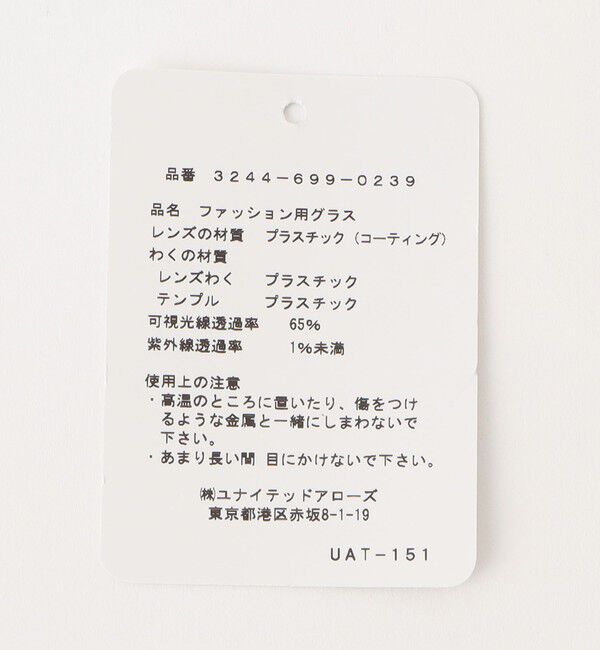 品番 3244-699-0239
品名 ファッション用グラス
レンズの材質 プラスチック(コーティング)
わくの材質
レンズわく プラスチック
テンプル プラスチック
可視光線透過率 65%
紫外線透過率 1%未満
使用上の注意
・高温のところに置いたり、傷をつけ
るような金属と一緒にしまわないで
下さい。
・あまり長い間 目にかけないで下さい。
㈱ユナイテッドアローズ
東京都港区赤坂8-1-19
UAT-151